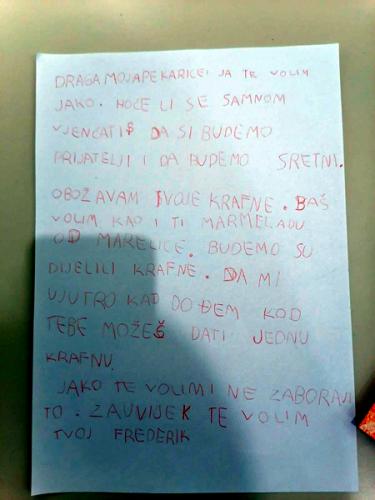 DRAGA MOJA PEKARICE! JA TE VOLIM
JAKO. HOĆE LI SE SAMNOM
VJENČATIŠ DA SI BUDEMO
PRIJATELJI I DA BUDEMO SRETNI.
OBOŽAVAM TVOJE KRAFNE. BAŠ
VOLIM KAO I TI MARMELADU
OD MARELICE. BUDEMO SU
DIJELILI KRAFNE. DA MI
UJUTRO KAD DOĐEM KOD
TEBE MOŽEŠ DATI JEDNU
KRAFNU.
JAKO TE VOLIM I NE ZABORAVI
TO. ZAUVIJEK TE VOLIM
TVOJ FREDERIK